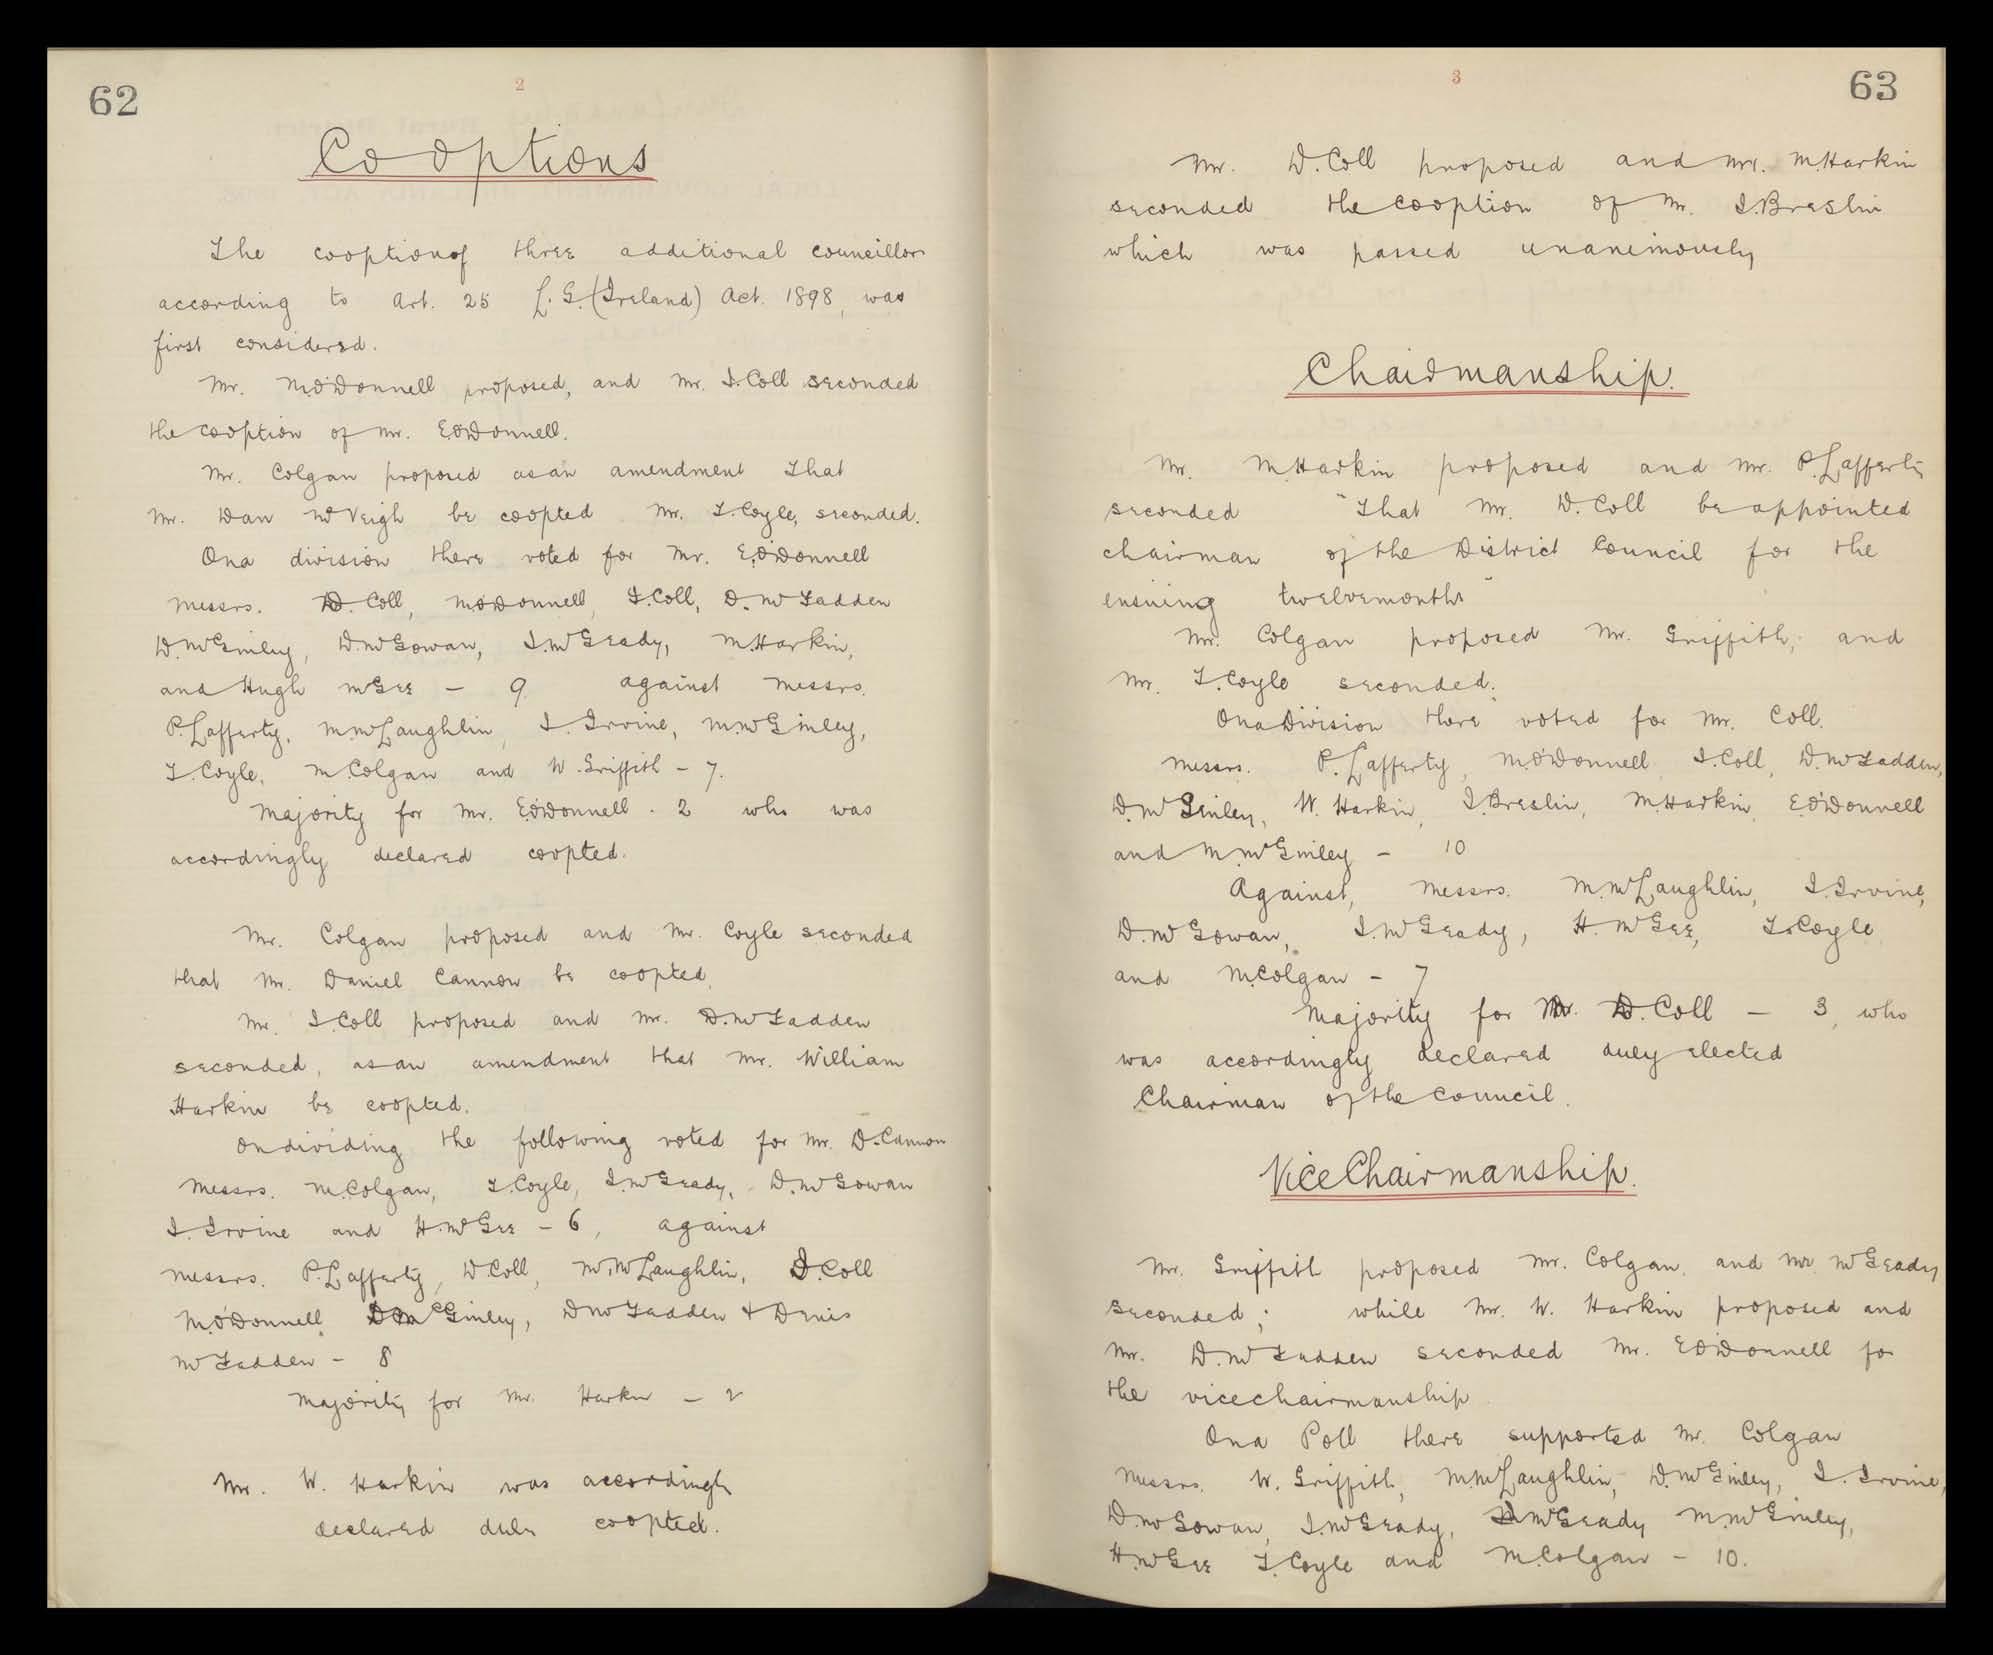 62
2
Cooptions
The cooption of three additional councillors
according to Art. 25 L.G. (Ireland) Act. 1898, was
first considered.
Mr. M.O'Donnell proposed, and Mr. J.Coll seconded
the cooption of Mr. E.O'Donnell.
Mr. Colgan proposed as an amendment that
Mr. Dan McVeigh be coopted Mr. T.Coyle, seconded.
On a division there voted for Mr. E.O'Donnell
Messrs. D. Coll, M.O'Donnell, J.Coll, D. McFadden
D.McGinley, D.McGowan, J.McGeady, M.Harkin,
and Hugh McGee - 9 against Messrs.
P.Lafferty, M.McLaughlin, J. Irvine, M.McGinley,
T.Coyle, M.Colgan and W.Griffith - 7.
Majority for Mr. E.O'Donnell - 2 who was
accordingly declared coopted.
Mr. Colgan proposed and Mr. Coyle seconded
that Mr. Daniel Cannon be coopted.
Mr. J.Coll proposed and Mr. D.McFadden
seconded, as an amendment that Mr. William
Harkin be coopted.
On dividing the following voted for Mr. D.Cannon
Messrs. M.Colgan, T.Coyle, J.McGeady, D.McGowan
J.Irvine and H.McGee - 6, against
Messrs. P.Lafferty, D.Coll, M.McLaughlin, J.Coll
M.O'Donnell, D McGinley, D McFadden & Denis
McFadden - 8
Majority for Mr. Harkin - 2
Mr. W. Harkin was accordingly
declared duly coopted.
3
63
Mr. D.Coll proposed and Mr. M.Harkin
seconded the cooption of Mr. J.Breslin
which was passed unanimously
Chairmanship.
Mr. M.Harkin proposed and Mr. P.Lafferty
seconded "That Mr. D.Coll be appointed
chairman of the District Council for the
ensuing twelvemonths"
Mr. Colgan proposed Mr. Griffith, and
Mr. T.Coyle seconded.
On a Division there voted for Mr. Coll.
Messrs. P.Lafferty, M.O'Donnell, J.Coll, D.McFadden,
D.McGinley, W. Harkin, J.Breslin, M.Harkin, E.O'Donnell
and M.McGinley - 10
Against, Messrs. M.McLaughlin, J.Irvine,
D.McGowan, J.McGeady, H.McGee, T.Coyle
and M.Colgan - 7
Majority for Mr. D.Coll - 3, who
was accordingly declared duly elected
Chairman of the Council.
Vice Chairmanship.
Mr. Griffith proposed Mr. Colgan, and Mr. McGeady
seconded; while Mr. W. Harkin proposed and
Mr. D.McFadden seconded Mr. E.O'Donnell for
the vicechairmanship
On a Poll there supported Mr. Colgan
Messrs. W. Griffith, M.McLaughlin, D.McGinley, J. Irvine,
D.McGowan, J.McGeady, McGeady M.McGinley,
H.McGee T.Coyle and M.Colgan - 10.